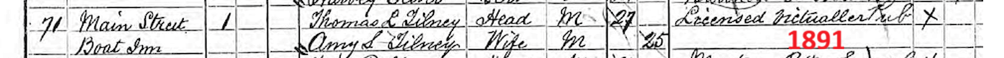 71 Main Street 1 Thomas L Tilney Head M 27 Licensed Victualler Pub X
Boat Inn Amy S Tilney Wife M 25 1891